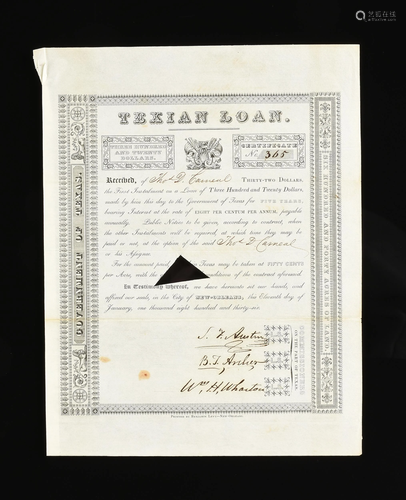 艺拍在线
TEXIAN LOAN.
THREE HUNDRED
AND TWENTY
DOLLARS.
CERTIFICATE
No. 365
Received, of Thos D. Carneal THIRTY-TWO DOLLARS,
the First Instalment on a Loan of Three Hundred and Twenty Dollars,
made by him this day to the Government of Texas for FIVE YEARS,
bearing Interest at the rate of EIGHT PER CENTUM PER ANNUM, payable
annually. Public Notice to be given, according to contract, when
the other Instalments will be required, at which time they may be
paid or not, at the option of the said Thos D. Carneal
or his Assigns.
For the amount paid Texas may be taken at FIFTY CENTS
per Acre, with the condition of the contract aforesaid.
In Testimony Whereof, we have hereunto set our hands, and
affixed our seals, in the City of NEW-ORLEANS, this Eleventh day of
January, one thousand eight hundred and thirty-six.
S. F. Austin
B. T. Archer
Wm. H. Wharton
COMMISSIONERS
ON THE PART OF TEXAS.
GOVERNMENT OF TEXAS.
SIX HUNDRED AND FORTY ACRES OF LAND.